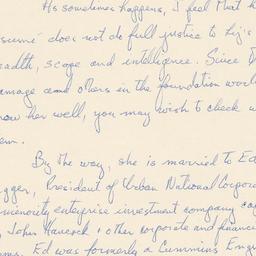 As sometimes happens, I feel that h
sumé does not do full justice to Liz's
eadth, scope and intelligence. Since D
amage and others in the foundation worl
now her well, you may wish to check w
em.
By the way, she is married to Ed
gger, President of Urban National Corpora
minority enterprise investment company
John Hancock + other corporate and finance
Ed was formerly a Cummins Engi